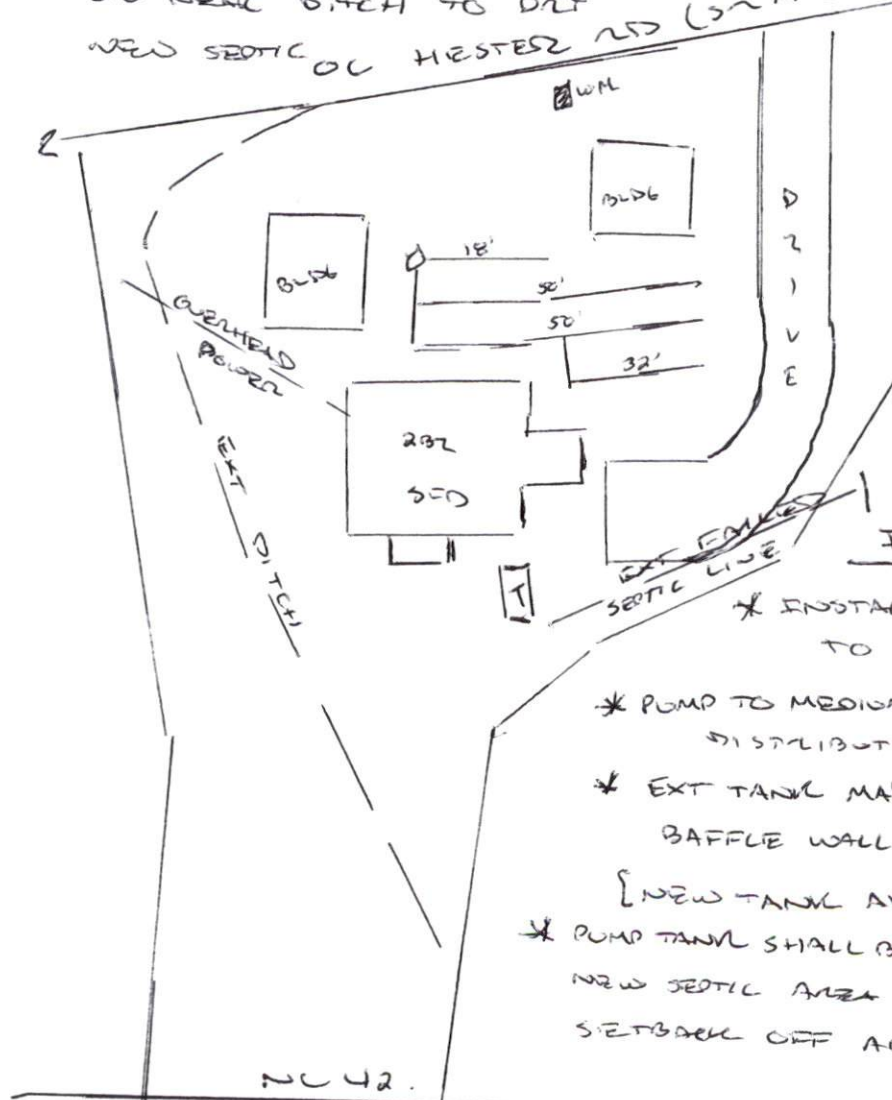 DITCH TO DRY
NEW SEPTIC
OL HESTER RD (SR
WM
BLDG
DRIVE
BLDG
18'
50'
50'
32'
OVERHEAD
POWER
2BR
SFD
EXT DITCH
T
EXT FAILED
SEPTIC LINE
* INSTA
TO
* PUMP TO MEDIU
DISTRIBUT
* EXT TANK MA
BAFFLE WALL
[NEW TANK A
* PUMP TANK SHALL B
NEW SEPTIC AREA
SETBACK OFF A
NC 42.